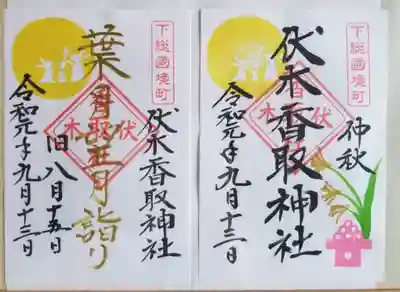 下総國境町
仲秋
伏木香取神社
令和元年九月十三日
下総國境町
伏木香取神社
葉月月詣り
伏木
香取社
旧八月十五日
令和元年九月十三日